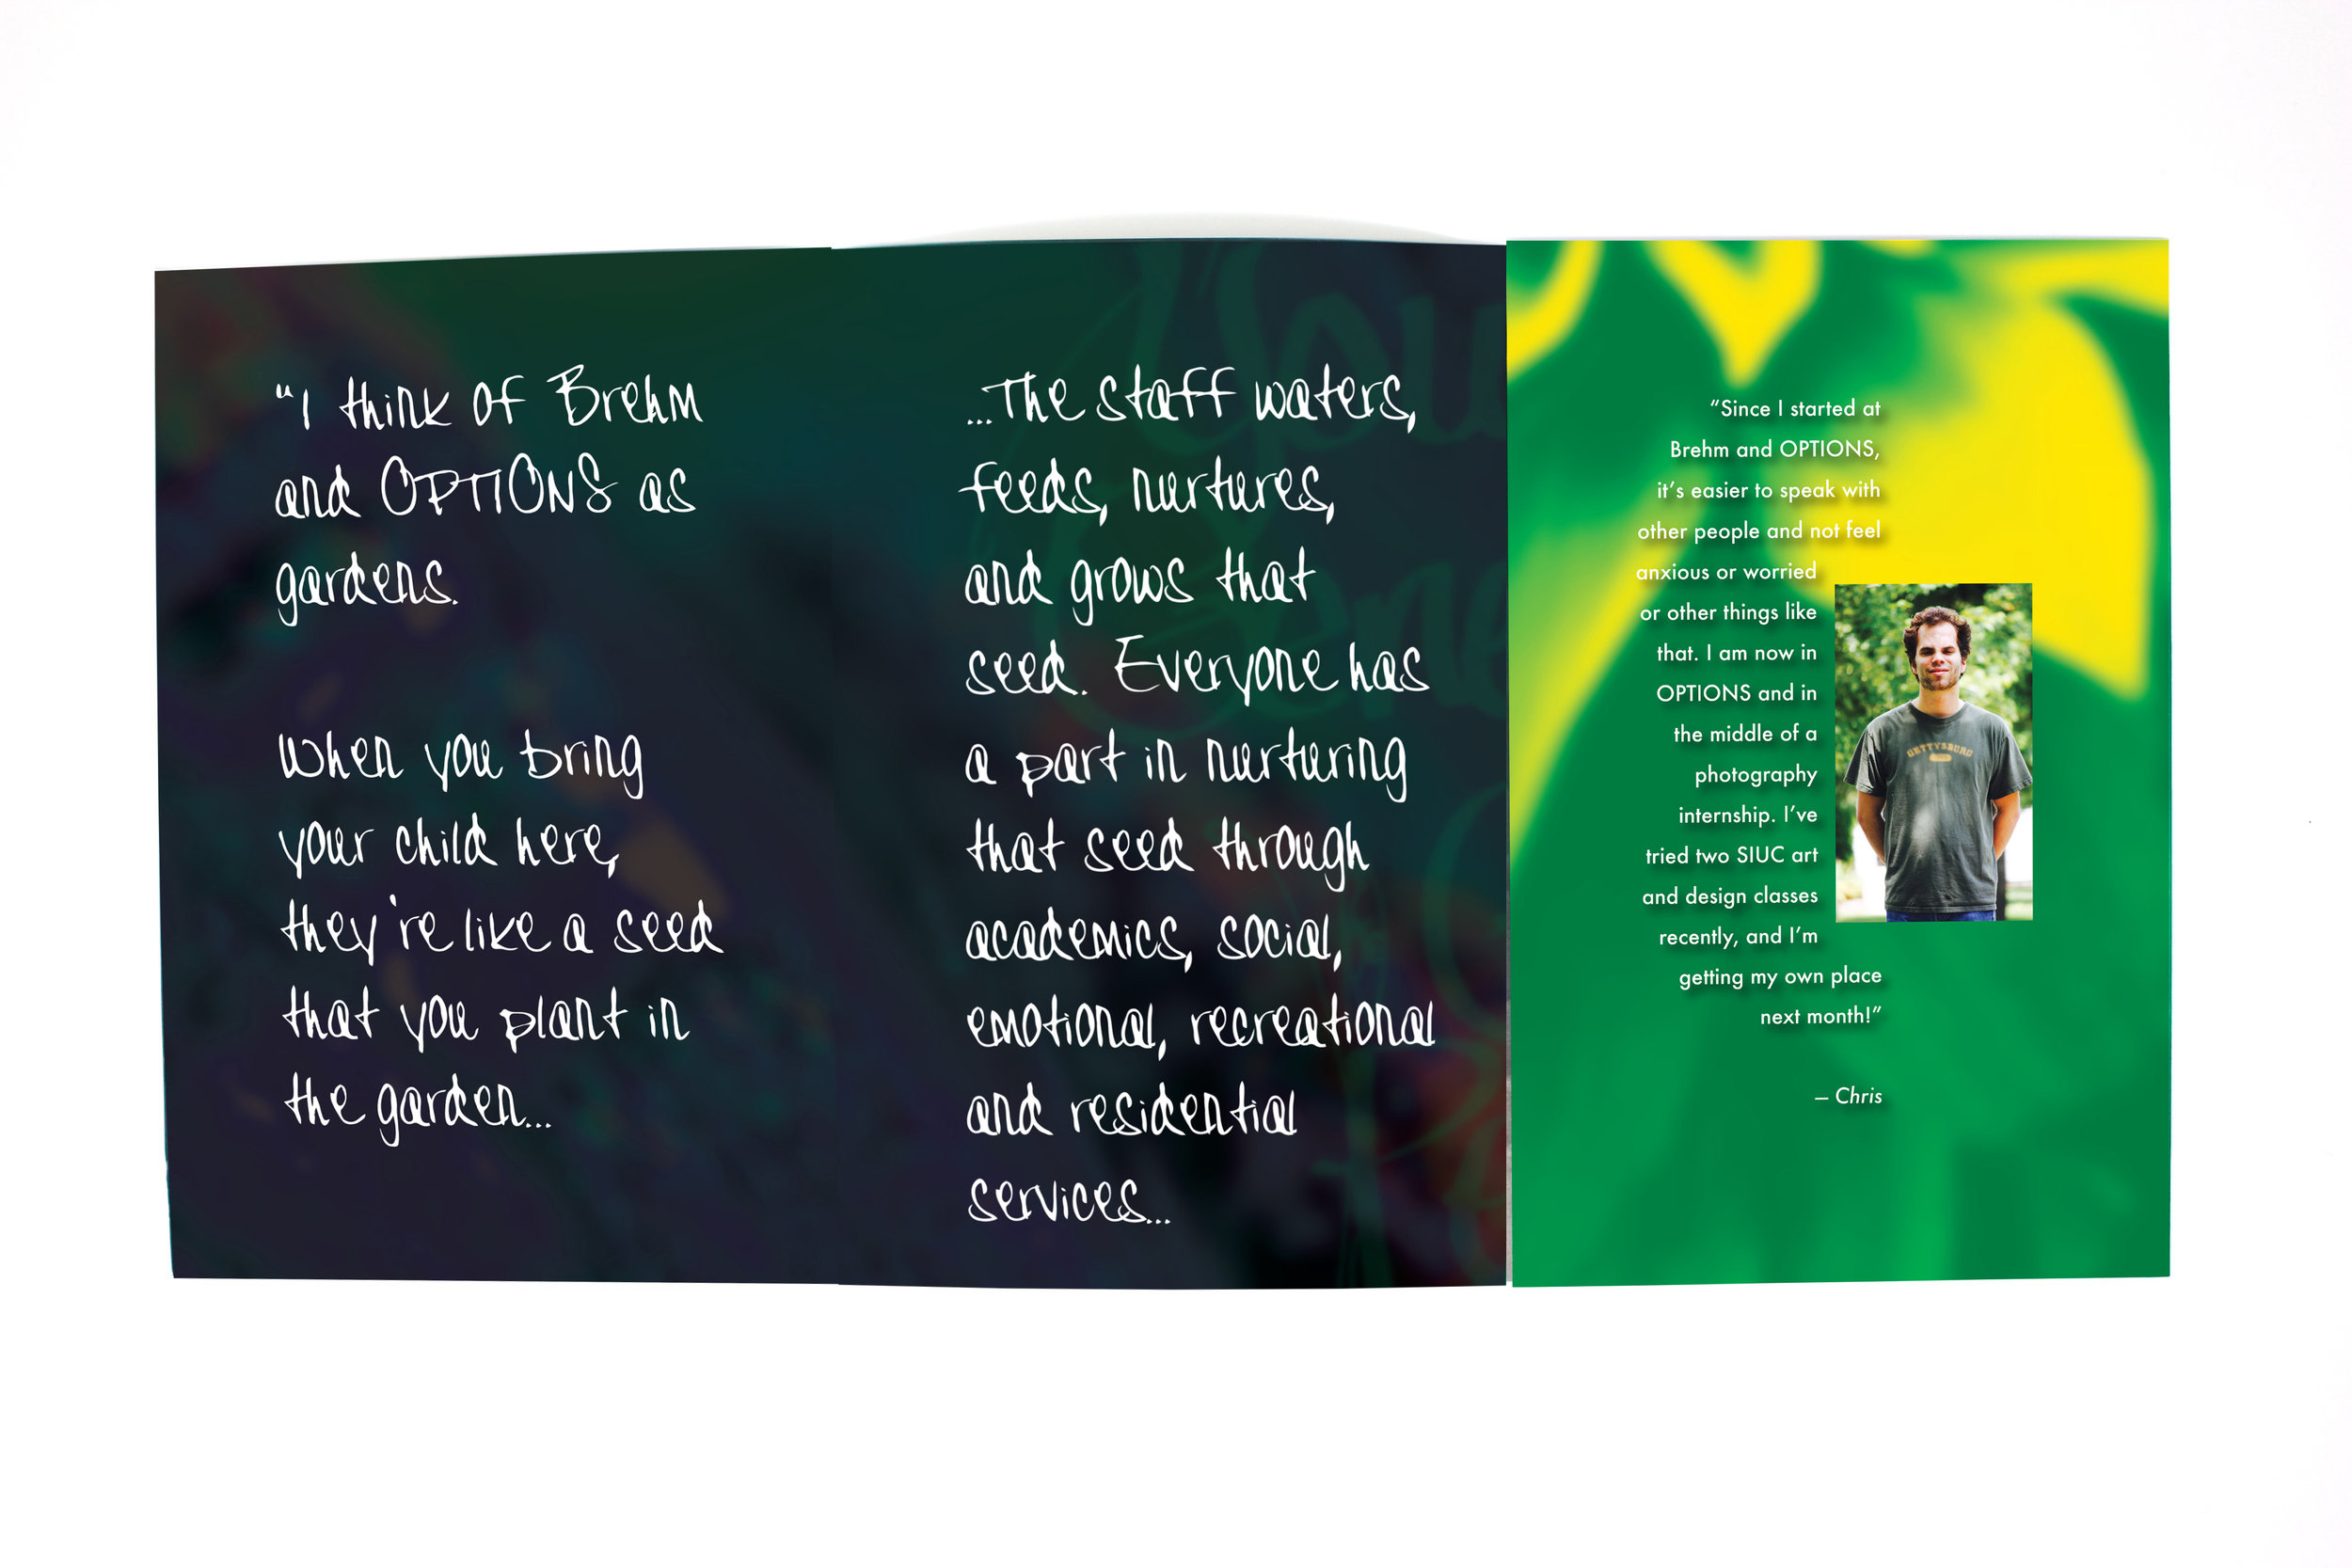 “I think of Brehm
and OPTIONS as
gardens.
When you bring
your child here,
they're like a seed
that you plant in
the garden...
...The staff waters,
feeds, nurtures,
and grows that
seed. Everyone has
a part in nurturing
that seed through
academics, social,
emotional, recreational
and residential
services...
“Since I started at
Brehm and OPTIONS,
it’s easier to speak with
other people and not feel
anxious or worried
or other things like
that. I am now in
OPTIONS and in
the middle of a
photography
internship. I’ve
tried two SIUC art
and design classes
recently, and I’m
getting my own place
next month!”
– Chris
GETTYSBURG